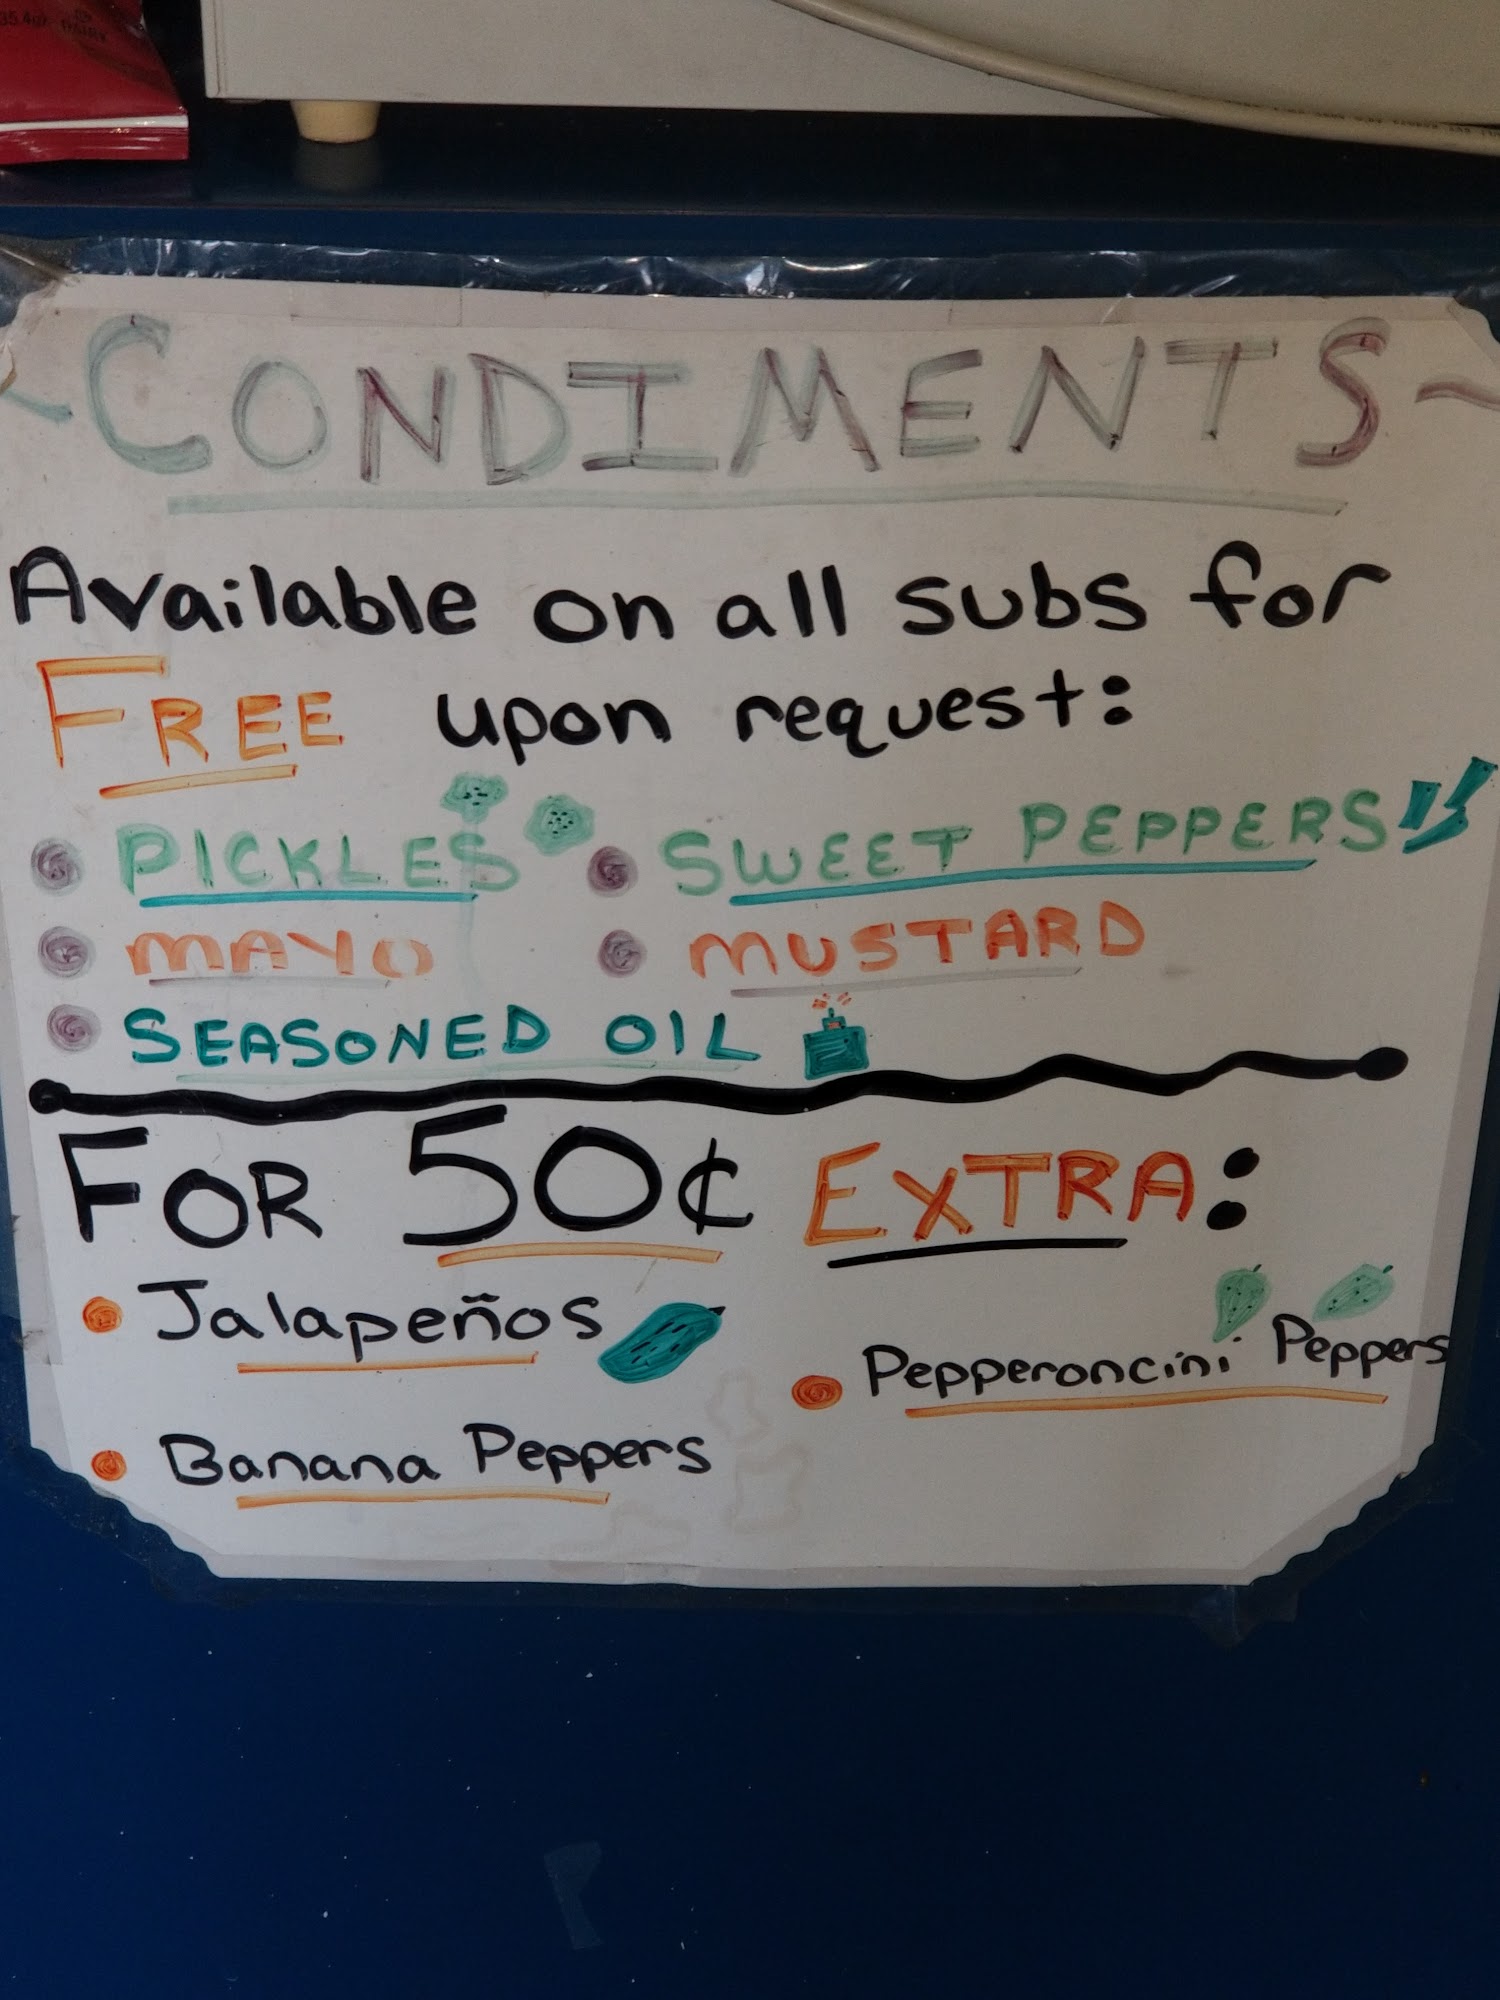 35.4oz
~CONDIMENTS~
Available on all subs for
FREE upon request:
PICKLES
SWEET PEPPERS
MAYO
MUSTARD
SEASONED OIL
FOR 50¢ EXTRA:
Jalapeños
Pepperoncini Peppers
Banana Peppers